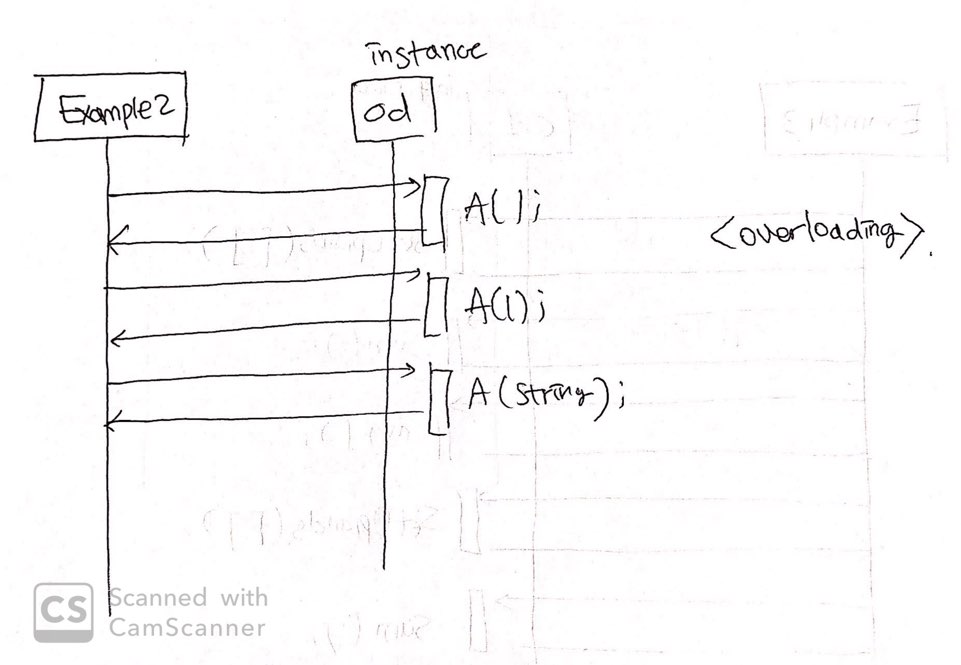 instance
Example2
od
A();
<overloading>.
A(1);
A(string);
CS Scanned with
CamScanner